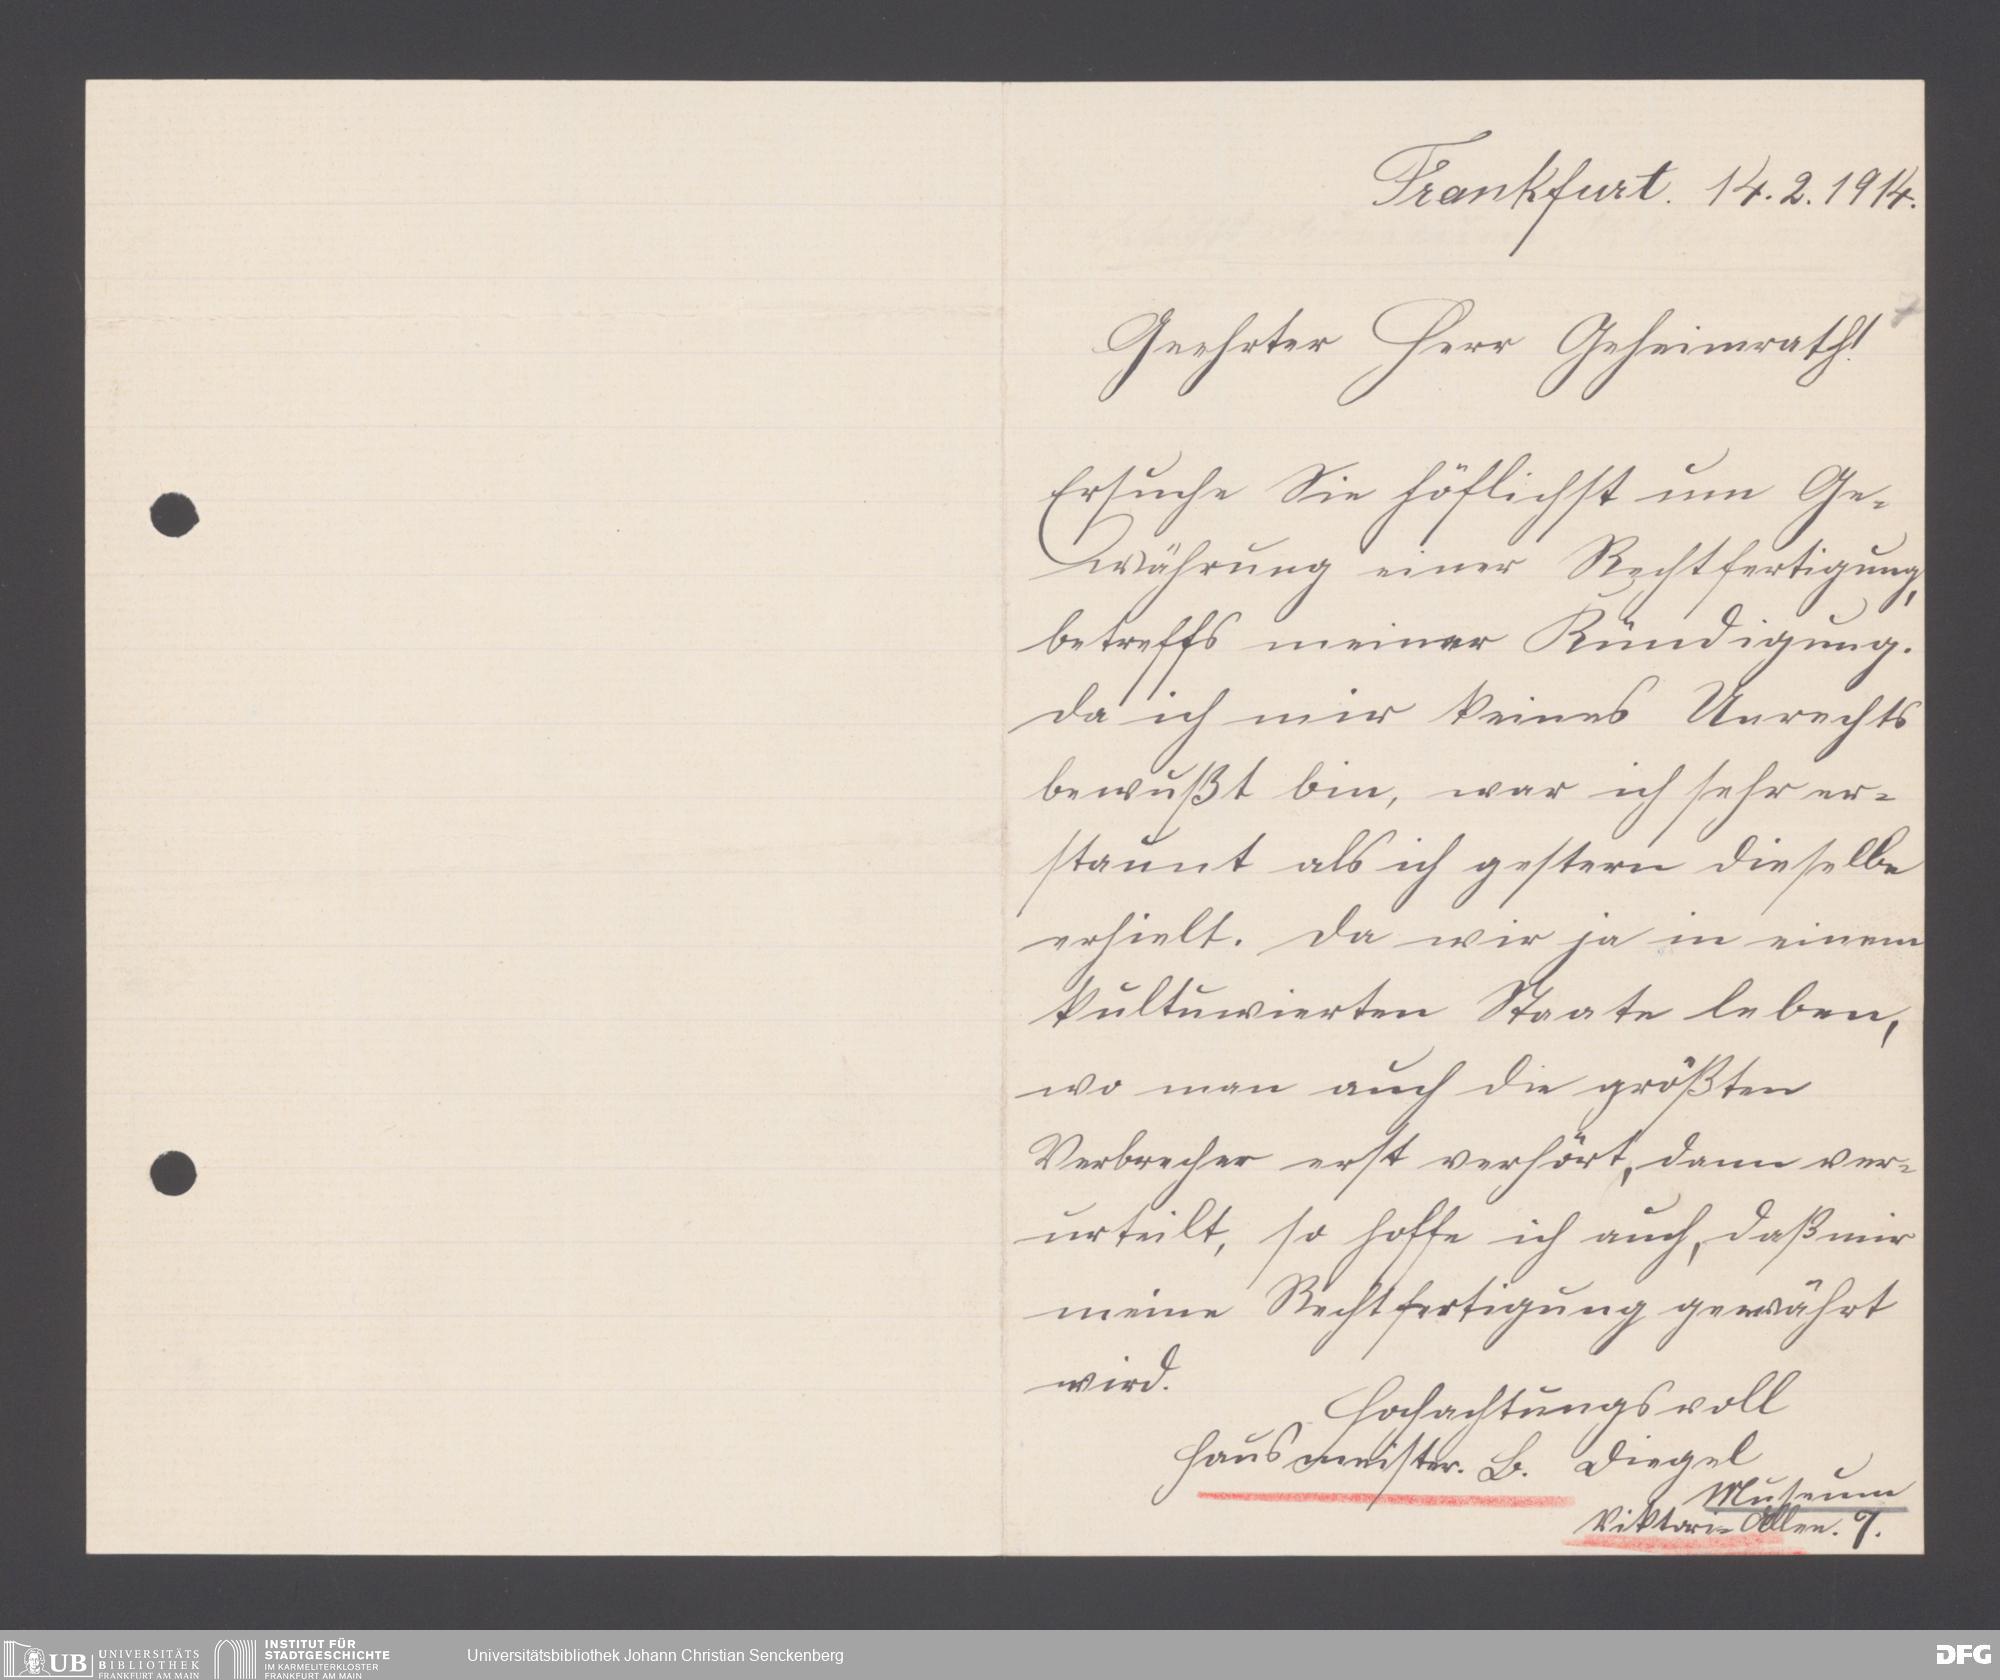 Frankfurt. 14.2.1914.
Geehrter Herr Geheimrath!
Ersuche Sie höflichst um Ge-
währung einer Rechtfertigung,
betreffs meiner Kündigung.
Da ich mir keines Unrechts
bewußt bin, war ich sehr er-
staunt als ich gestern dieselbe
erhielt. Da wir ja in einem
kultuwierten Staate leben,
wo man auch die größten
Verbrecher erst verhört, dann ver-
urteilt, so hoffe ich auch, daß mir
meine Rechtfertigung gewährt
wird.
Hochachtungsvoll
Hausmeister. B. Diegel
Museum
Viktori-Allee. 7.
UB UNIVERSITÄTS
BIBLIOTHEK
FRANKFURT AM MAIN
INSTITUT FÜR
STADTGESCHICHTE
IM KARMELITERKLOSTER
FRANKFURT AM MAIN
Universitätsbibliothek Johann Christian Senckenberg
DFG